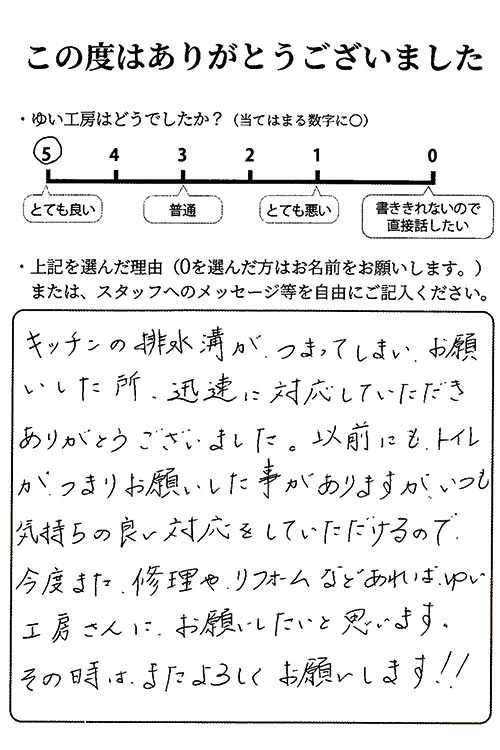 この度はありがとうございました
・ゆい工房はどうでしたか？（当てはまる数字に〇）
5 4 3 2 1 0
とても良い 普通 とても悪い 書ききれないので
直接話したい
・上記を選んだ理由（0を選んだ方はお名前をお願いします。）
または、スタッフへのメッセージ等を自由にご記入ください。
キッチンの排水溝が、つまってしまい、お願
いした所、迅速に対応していただき
ありがとうございました。以前にも、トイレ
が、つまりお願いした事がありますが、いつも
気持ちの良い対応をしていただけるので、
今度また、修理や、リフォームなどあれば、ゆい
工房さんに、お願いしたいと思います。
その時は、またよろしくお願いします!!